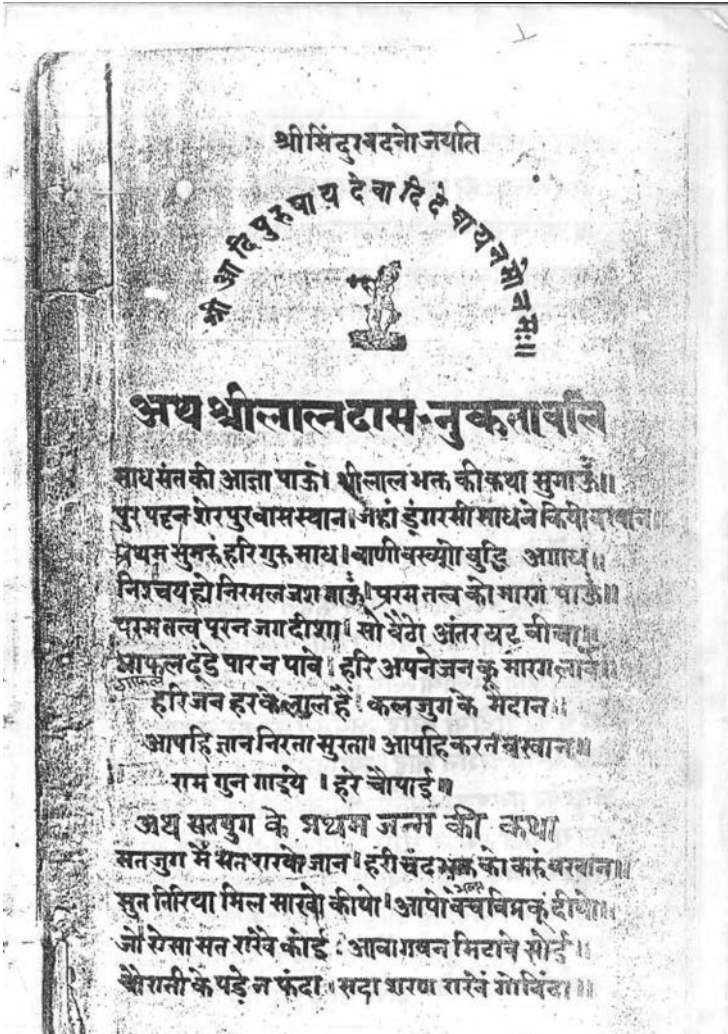 श्रीसिंदुरवदनो जयति
श्री आदिपुरुषाय देवादिदेवाय नमो नमः॥
अथ श्रीलालदास-नुकतावलि
साधसंत की आज्ञा पाऊं। श्री लाल भक्त की कथा सुगाऊं॥
पुर पटन शेरपुर वास स्थान। जहां डुंगरसी साधने कियो बखान॥
प्रथम सुमरुं हरि गुरु साध। बाणी बख्शो बुद्धि अगाध॥
निश्चय ह्ये निरमल जश गाऊं। परम तत्व को मारग पाऊं॥
परम तत्व पूरन जगदीशा। सो बैठो अंतर घट बीचा॥
गाफल ढुंडे पार न पावे। हरि अपने जन कु मारग लावे॥
गाफल
हरिजन हरके लाल हैं। कलजुग के मैदान॥
आपहि ज्ञान निरता सुरता। आपहि करत बखान॥
राम गुन गाईये । हरे चौपाई॥
अथ सतयुग के प्रथम जन्म की कथा
सतजुग में सत राखो जान। हरीचंद भक्त को करुं बखान॥
सुत तिरिया मिल साखो कीयो। आपो बेच विप्र कूं दीयो॥
जो ऐसा सत राखे कोई। आवागवन मिटावे सोई॥
चौरासी के पड़े न फंदा। सदा शरण राखें गोविंदा॥